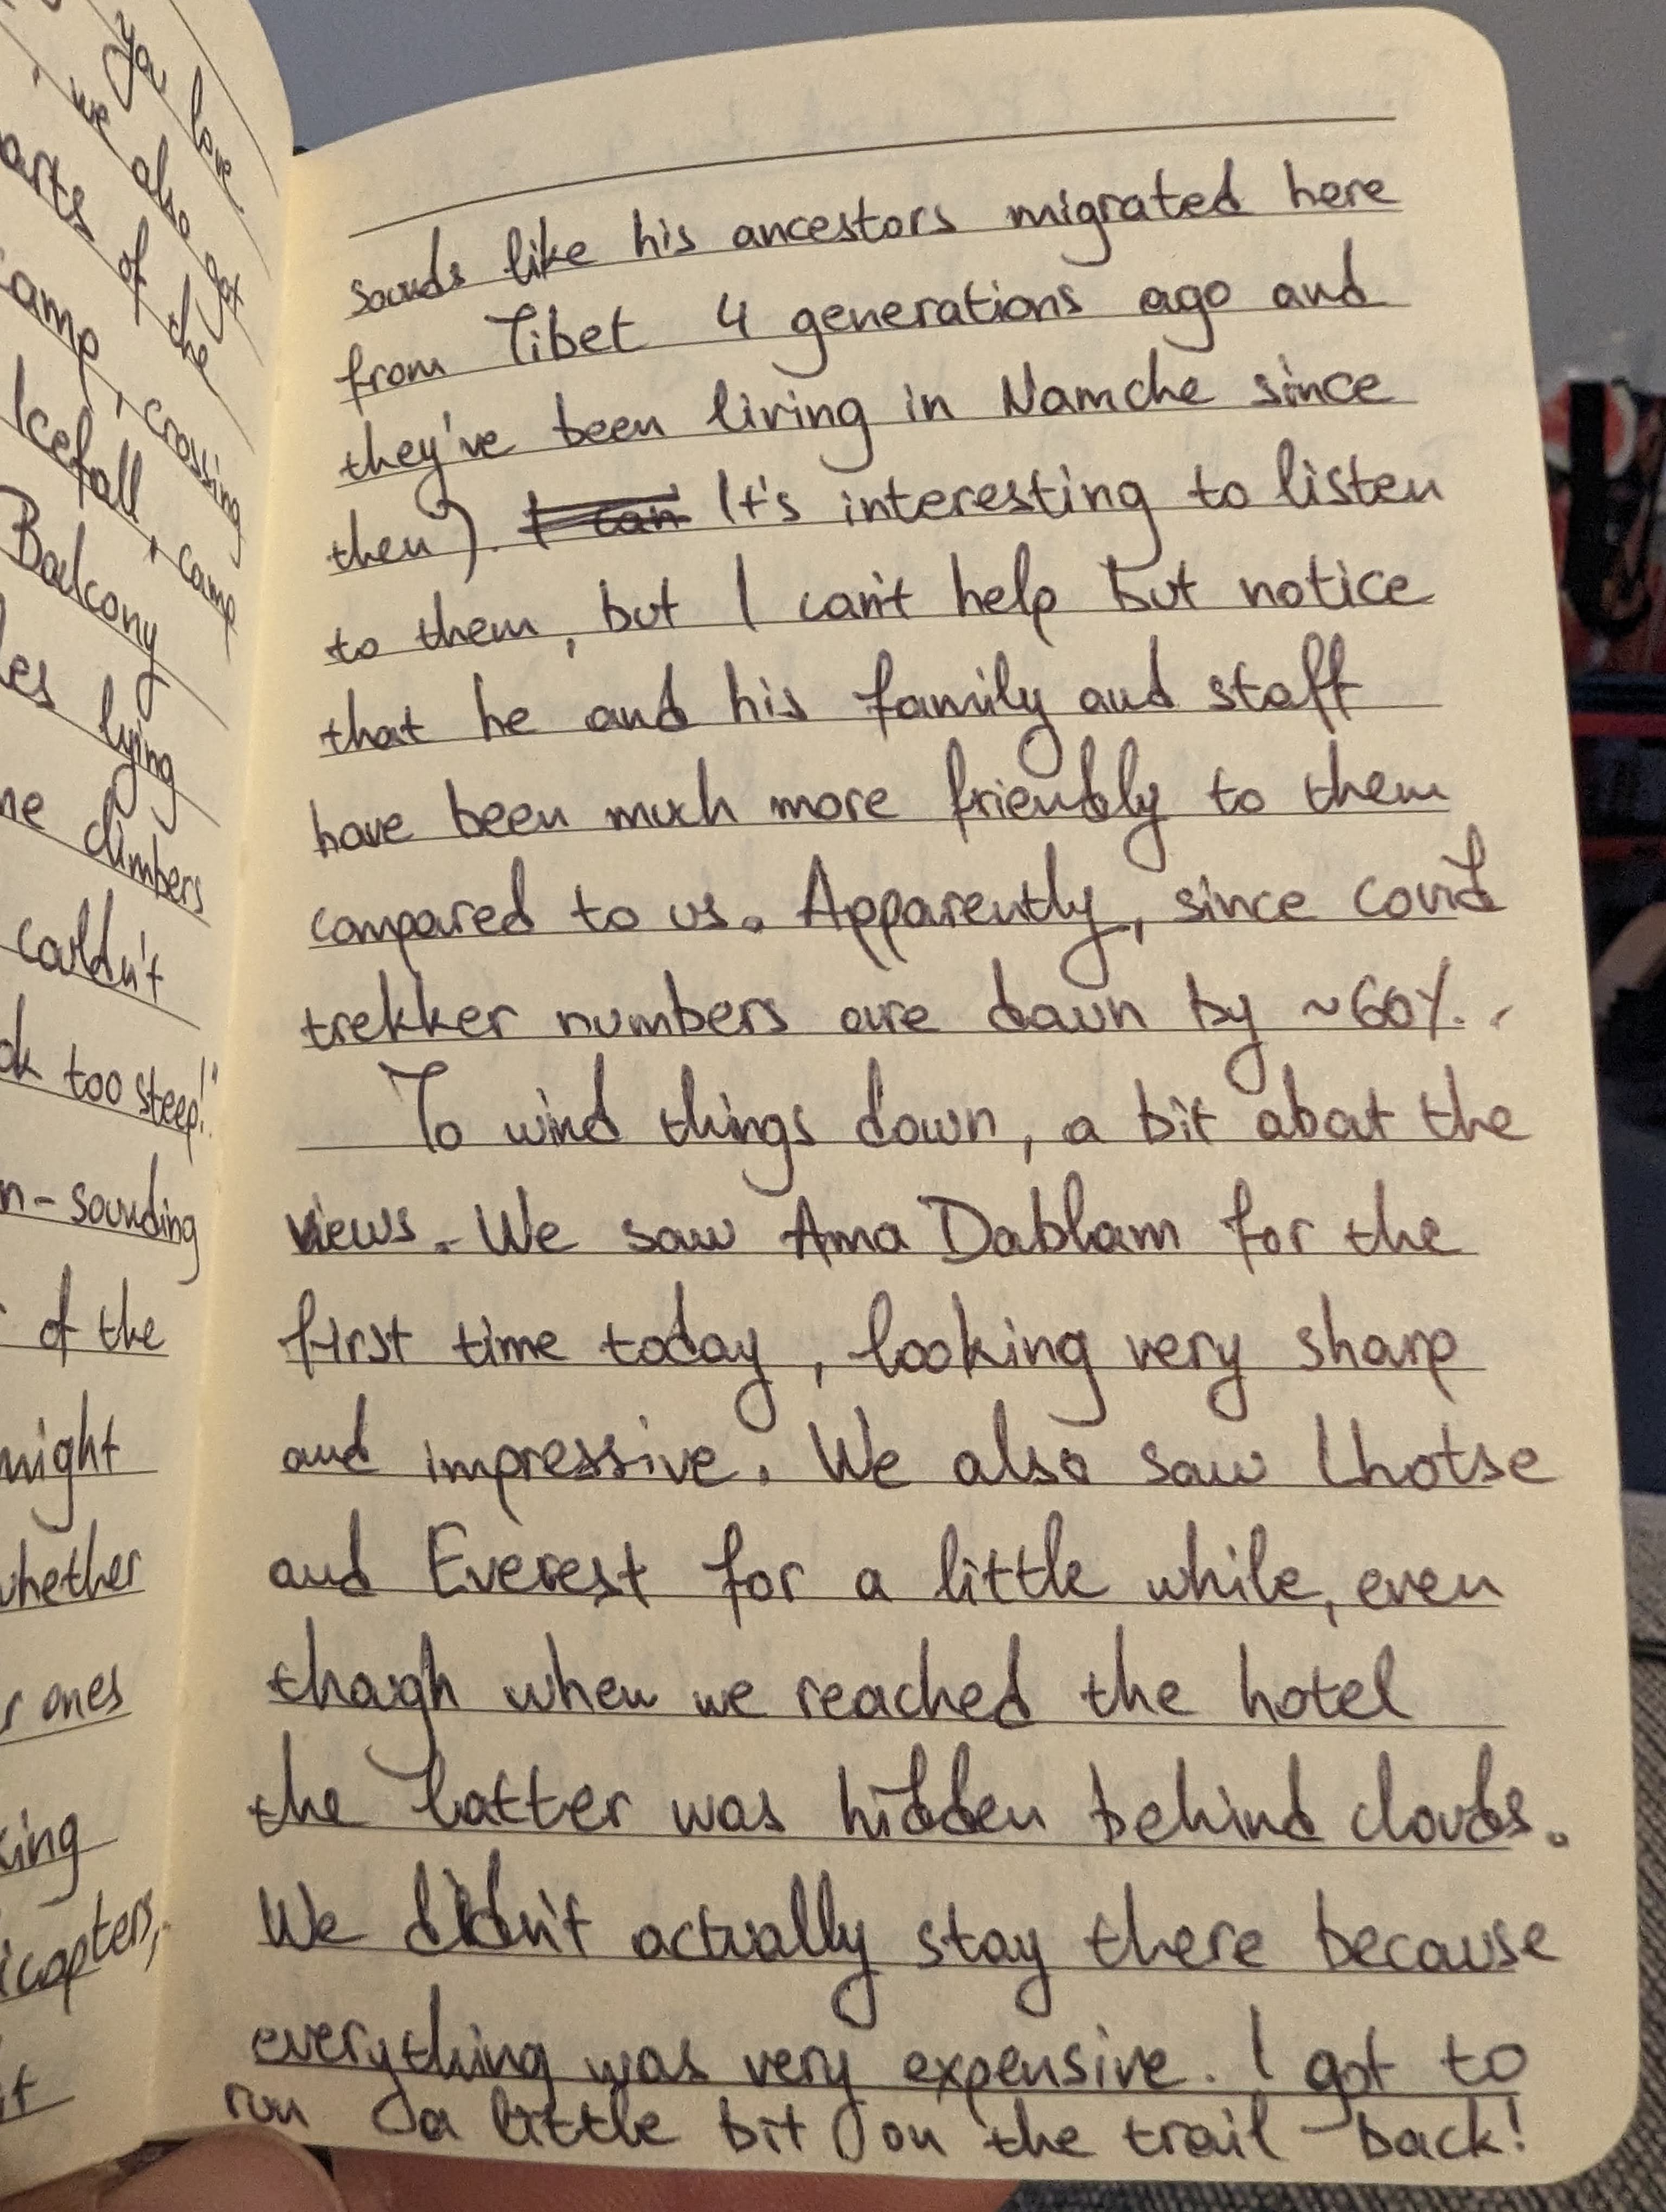 you love
, we also got
arts of the
amp, crossing
Icefall, camp
Balcony
es lying
ne climbers
couldn't
ok too steep!"
n-sounding
of the
might
whether
r ones
king
icopters,
it
sounds like his ancestors migrated here
from Tibet 4 generations ago and
they've been living in Namche since
then). I can It's interesting to listen
to them, but I can't help but notice
that he and his family and staff
have been much more friendly to them
compared to us. Apparently, since covid
trekker numbers are down by ~60%.
To wind things down, a bit about the
views. We saw Ama Dablam for the
first time today, looking very sharp
and impressive. We also saw Lhotse
and Everest for a little while, even
though when we reached the hotel
the latter was hidden behind clouds.
We didn't actually stay there because
everything was very expensive. I got to
run a little bit on the trail back!